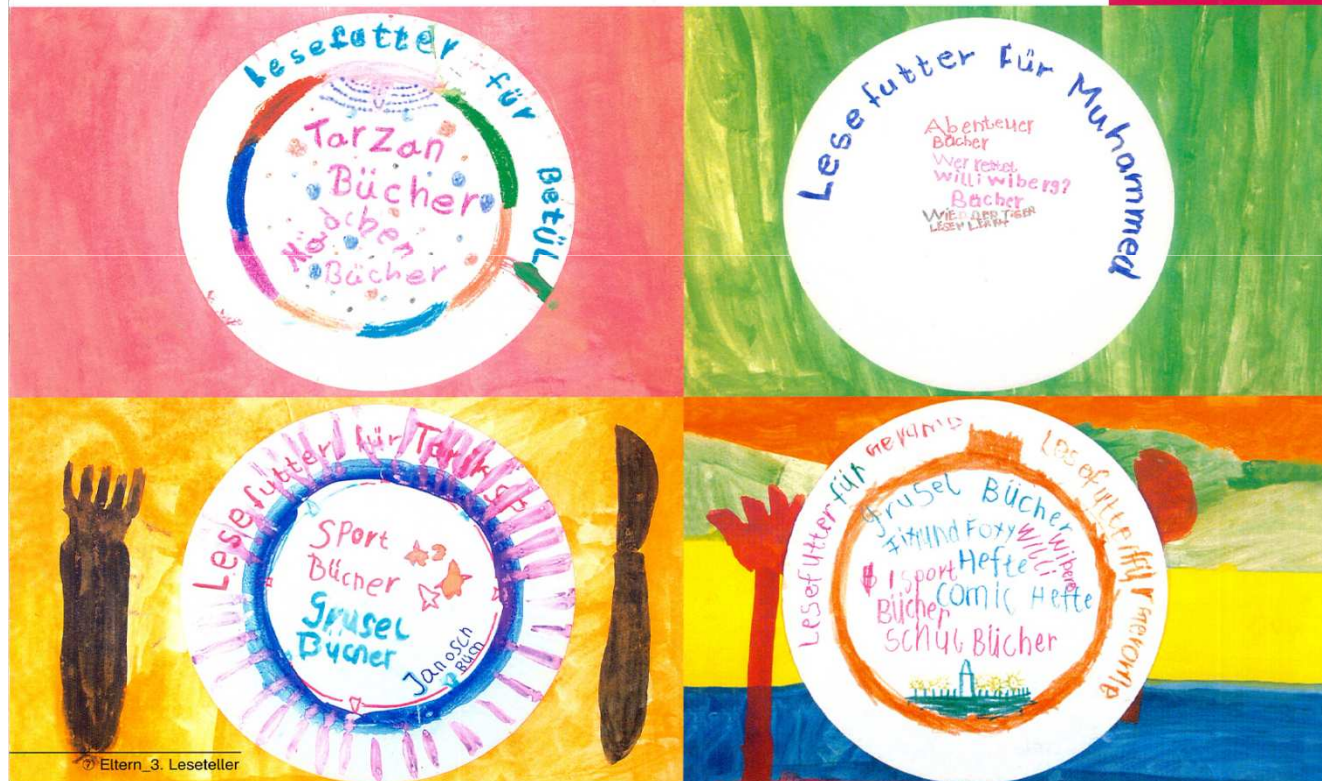 Lesefutter für Betül
Tarzan
Bücher
Mädchen
Bücher
Lesefutter für Muhammed
Abenteuer
Bücher
Wer rettet
Willi wiberg?
Bücher
WIE DER TIGER
LESEN LERNT
Lesefutter für Tarik
Sport
Bücher
Grusel
Bücher
Janosch
Büch
Lesefutter für
Lesefutter für
grusel Bücher
Fix und Foxy
Hefte
Willi
Wiberg
sport
Bücher
comic Hefte
schul Bücher
⑦ Eltern_3. Leseteller